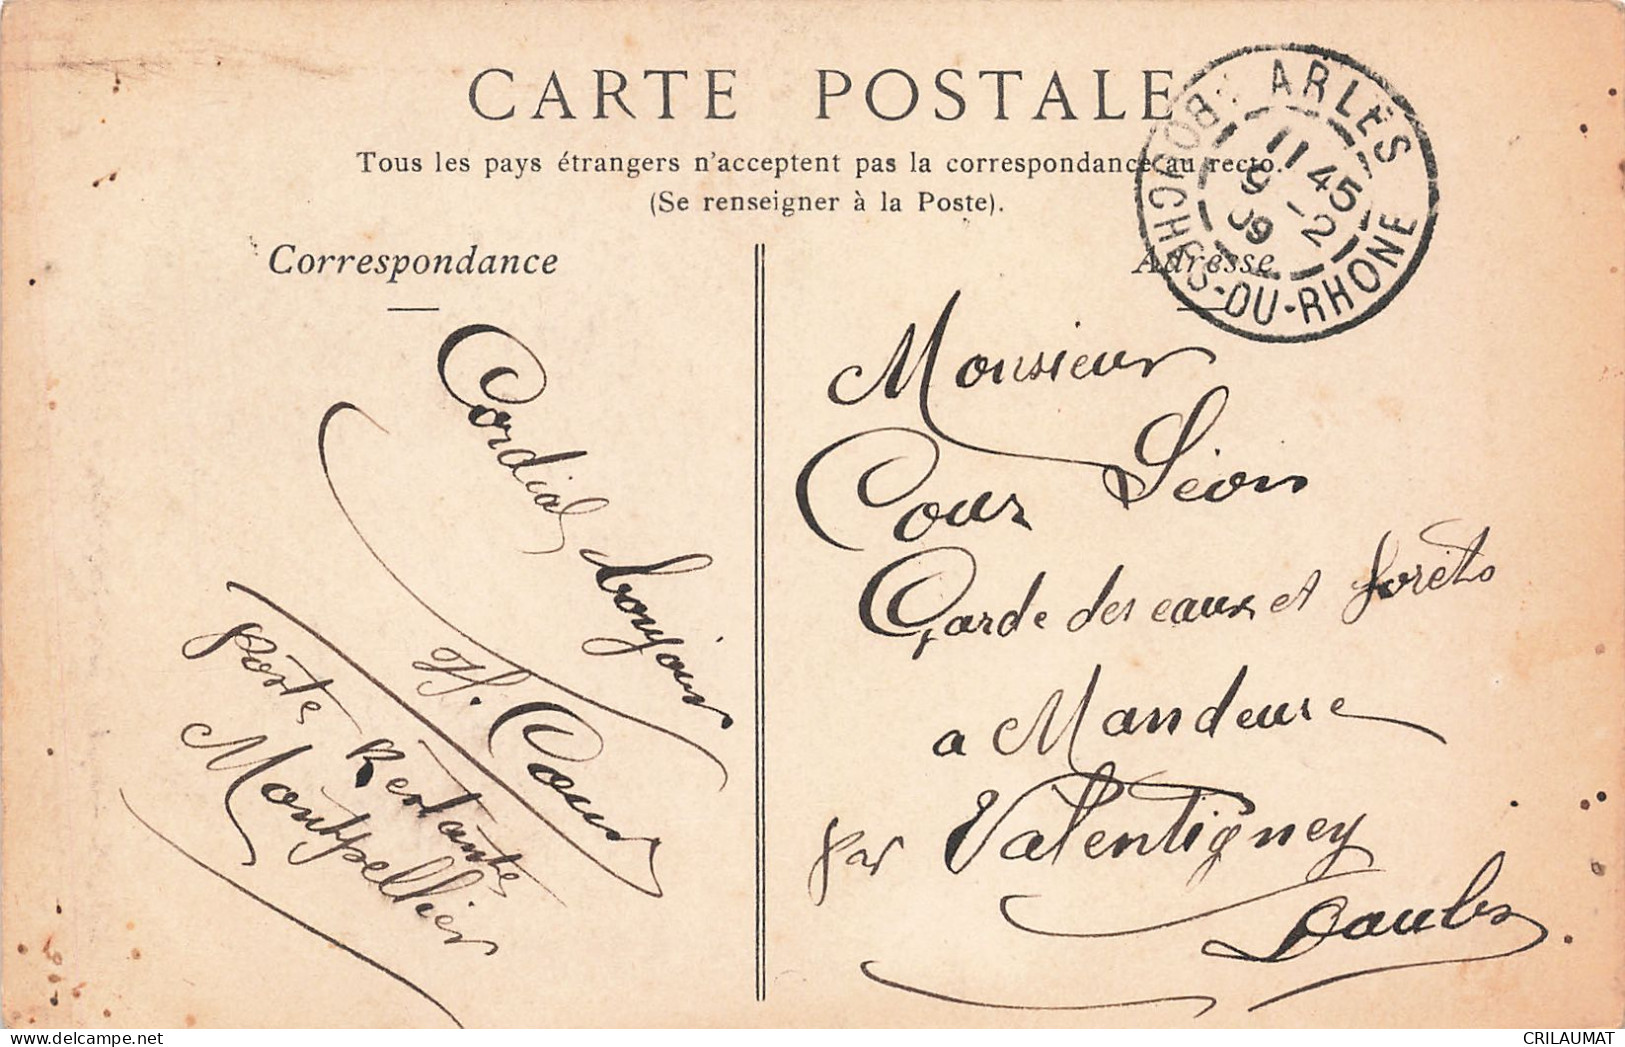 CARTE POSTALE
Tous les pays étrangers n'acceptent pas la correspondance au recto.
(Se renseigner à la Poste).
Correspondance
Adresse
ARLES
BOUCHES-DU-RHONE
11 45
9 -2
09
Cordial bonjour
H. Cour
poste Restante
Montpellier
Monsieur
Cour Léon
Garde des eaux et forêts
a Mandeure
par Valentigney
Doubs
CRILAUMAT